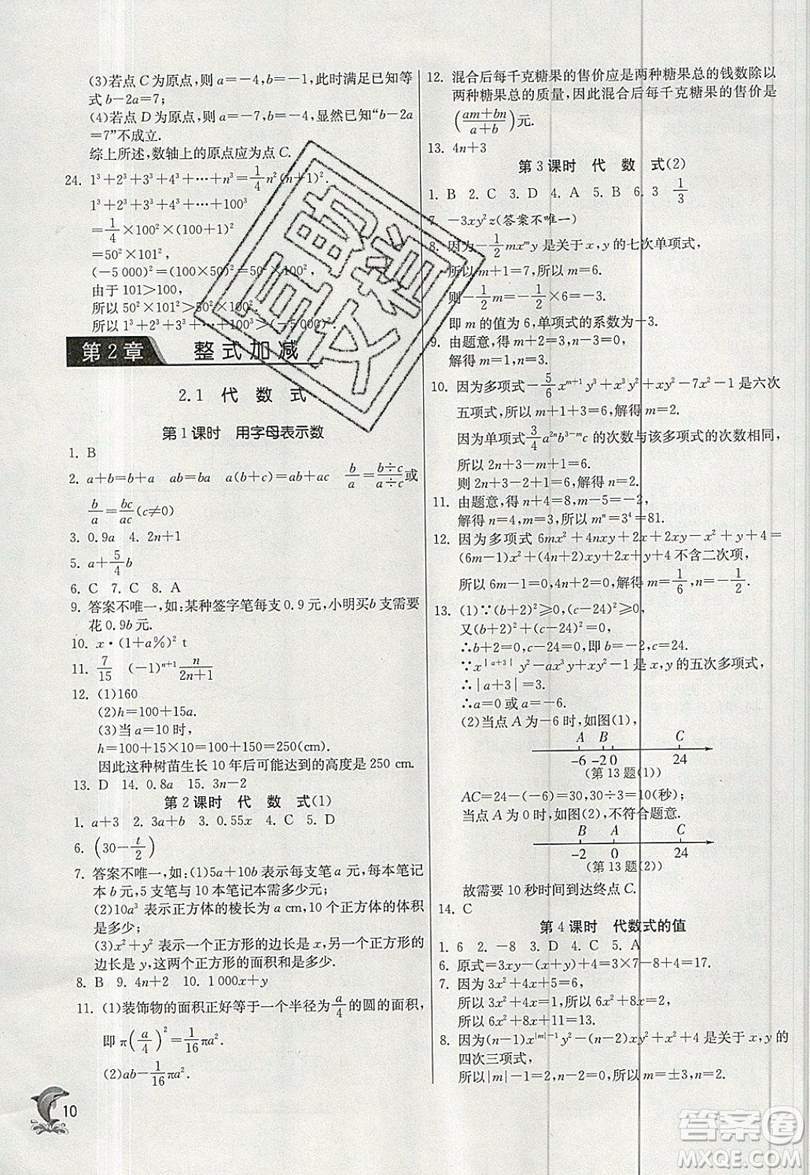 (3)若点 C 为原点,则 a=-4,b=-1,此时满足已知等
式 b-2a=7;
(4)若点 D 为原点,则 a=-7,b=-4,显然已知“b-2a
=7”不成立.
综上所述,数轴上的原点应为点 C.
24. 1³+2³+3³+4³+…+n³=1/4 n²(n+1)².
1³+2³+3³+4³+…+100³
=1/4×100²×(100+1)²
=50²×101²,
(-5 000)²=(-50×100)²=50²×100²,
由于 101>100,
所以 50²×101²>50²×100²,
所以 1³+2³+3³+…+100³>(-5 000)².
第 2 章 整式加减
2.1 代 数 式
第 1 课时 用字母表示数
1. B
2. a+b=b+a ab=ba b/a=(b÷c)/(a÷c)或
b/a=bc/ac(c≠0)
3. 0.9a 4. 2n+1
5. a+5/4 b
6. C 7. C 8. A
9. 答案不唯一,如:某种签字笔每支 0.9 元,小明买b 支需要
花 0.9b 元.
10. x·(1+a%)² t
11. 7/15 (-1)ⁿ⁺¹ n/(2n+1)
12. (1)160
(2)h=100+15a.
(3)当 a=10 时,
h=100+15×10=100+150=250(cm).
因此这种树苗生长 10 年后可能达到的高度是 250 cm.
13. D 14. 0.8a 15. 3n-2
第 2 课时 代 数 式(1)
1. a+3 2. 3a+b 3. 0.55x 4. C 5. D
6. (30-t/2)
7. 答案不唯一,如:(1)5a+10b 表示每支笔 a 元,每本笔记
本 b 元,5 支笔与 10 本笔记本需多少元.
(2)10a³ 表示正方体的棱长为 a cm,10 个正方体的体积
是多少.
(3)x²+y² 表示一个正方形的边长是 x,另一个正方形的
边长是 y,这两个正方形的面积之和是多少.
8. B 9. 4 10. 1000x+y
11. (1)装饰物的面积正好等于一个半径为 a/4 的圆的面积,
即 π(a/4)²=1/16 πa².
(2)ab-1/16 πa².
12. 混合后每千克糖果的售价应是两种糖果总的钱数除以
两种糖果总的质量,因此混合后每千克糖果的售价是
((am+bn)/(a+b))元.
13. 4n+3
第 3 课时 代 数 式(2)
1. B 2. C 3. D 4. A 5. B 6. 3 1/3
7. -3xy²z(答案不唯一)
8. 因为-1/2 mxᵐy 是关于 x,y 的七次单项式,
所以 m+1=7,所以 m=6.
则-1/2 m=-1/2×6=-3.
即 m 的值为 6,单项式的系数为-3.
10. 因为多项式-5/6 xᵐ⁺¹y³+x³y²+xy-1 是六次
五项式,所以 m+1+3=6,所以 m=2.
因为单项式 3/4 a²ⁿb³⁻ᵐc 的次数与该多项式的次数相同,
所以 2n+3-m+1=6.
则 2n+3-2+1=6,所以 n=2.
11. 由题意,得 n+4=8,m-5=-2,
解得 n=4,m=3,所以 mⁿ=3⁴=81.
12. 因为多项式 6mx²+4nxy+2x+2xy-x²+y+4=
(6m-1)x²+(4n+2)xy+2x+y+4 不含二次项,
所以 6m-1=0,4n+2=0,解得 m=1/6,n=-1/2.
13. (1)∵(b+2)²≥0,(c-24)²≥0,
又(b+2)²+(c-24)²=0,
∴b+2=0,c-24=0,即 b=-2,c=24.
∵x^|a+3|y²-ax³y+xy²-1 是 x,y 的五次多项式,
∴|a+3|=3.
∴a=0 或 a=-6.
(2)当点 A 为-6 时,如图(1),
A B C
-6 -2 0 24
(第 13 题(1))
AC=24-(-6)=30,30÷3=10(秒);
当点 A 为 0 时,如图(2),
B A C
-2 0 24
(第 13 题(2))
故需要 10 秒时间到达终点 C.
14. C
第 4 课时 代数式的值
1. 6 2. -8 3. D 4. C 5. A
6. 原式=3xy-(x+y)+4=3×7-8+4=17.
7. 因为 x²+2x+1+4=6,
所以 x²+2x=1,所以 3x²+6x=3,
所以 3x²+6x+10=13.
8. 因为(n-1)x^|m|⁻¹y-(n-2)xy²+x²+2 是关于 x,y 的
四次三项式,
所以|m|-1=3,n-2=0,n-1≠0,所以 m=±3,n=2.
10
答案圈
MXQE.COM